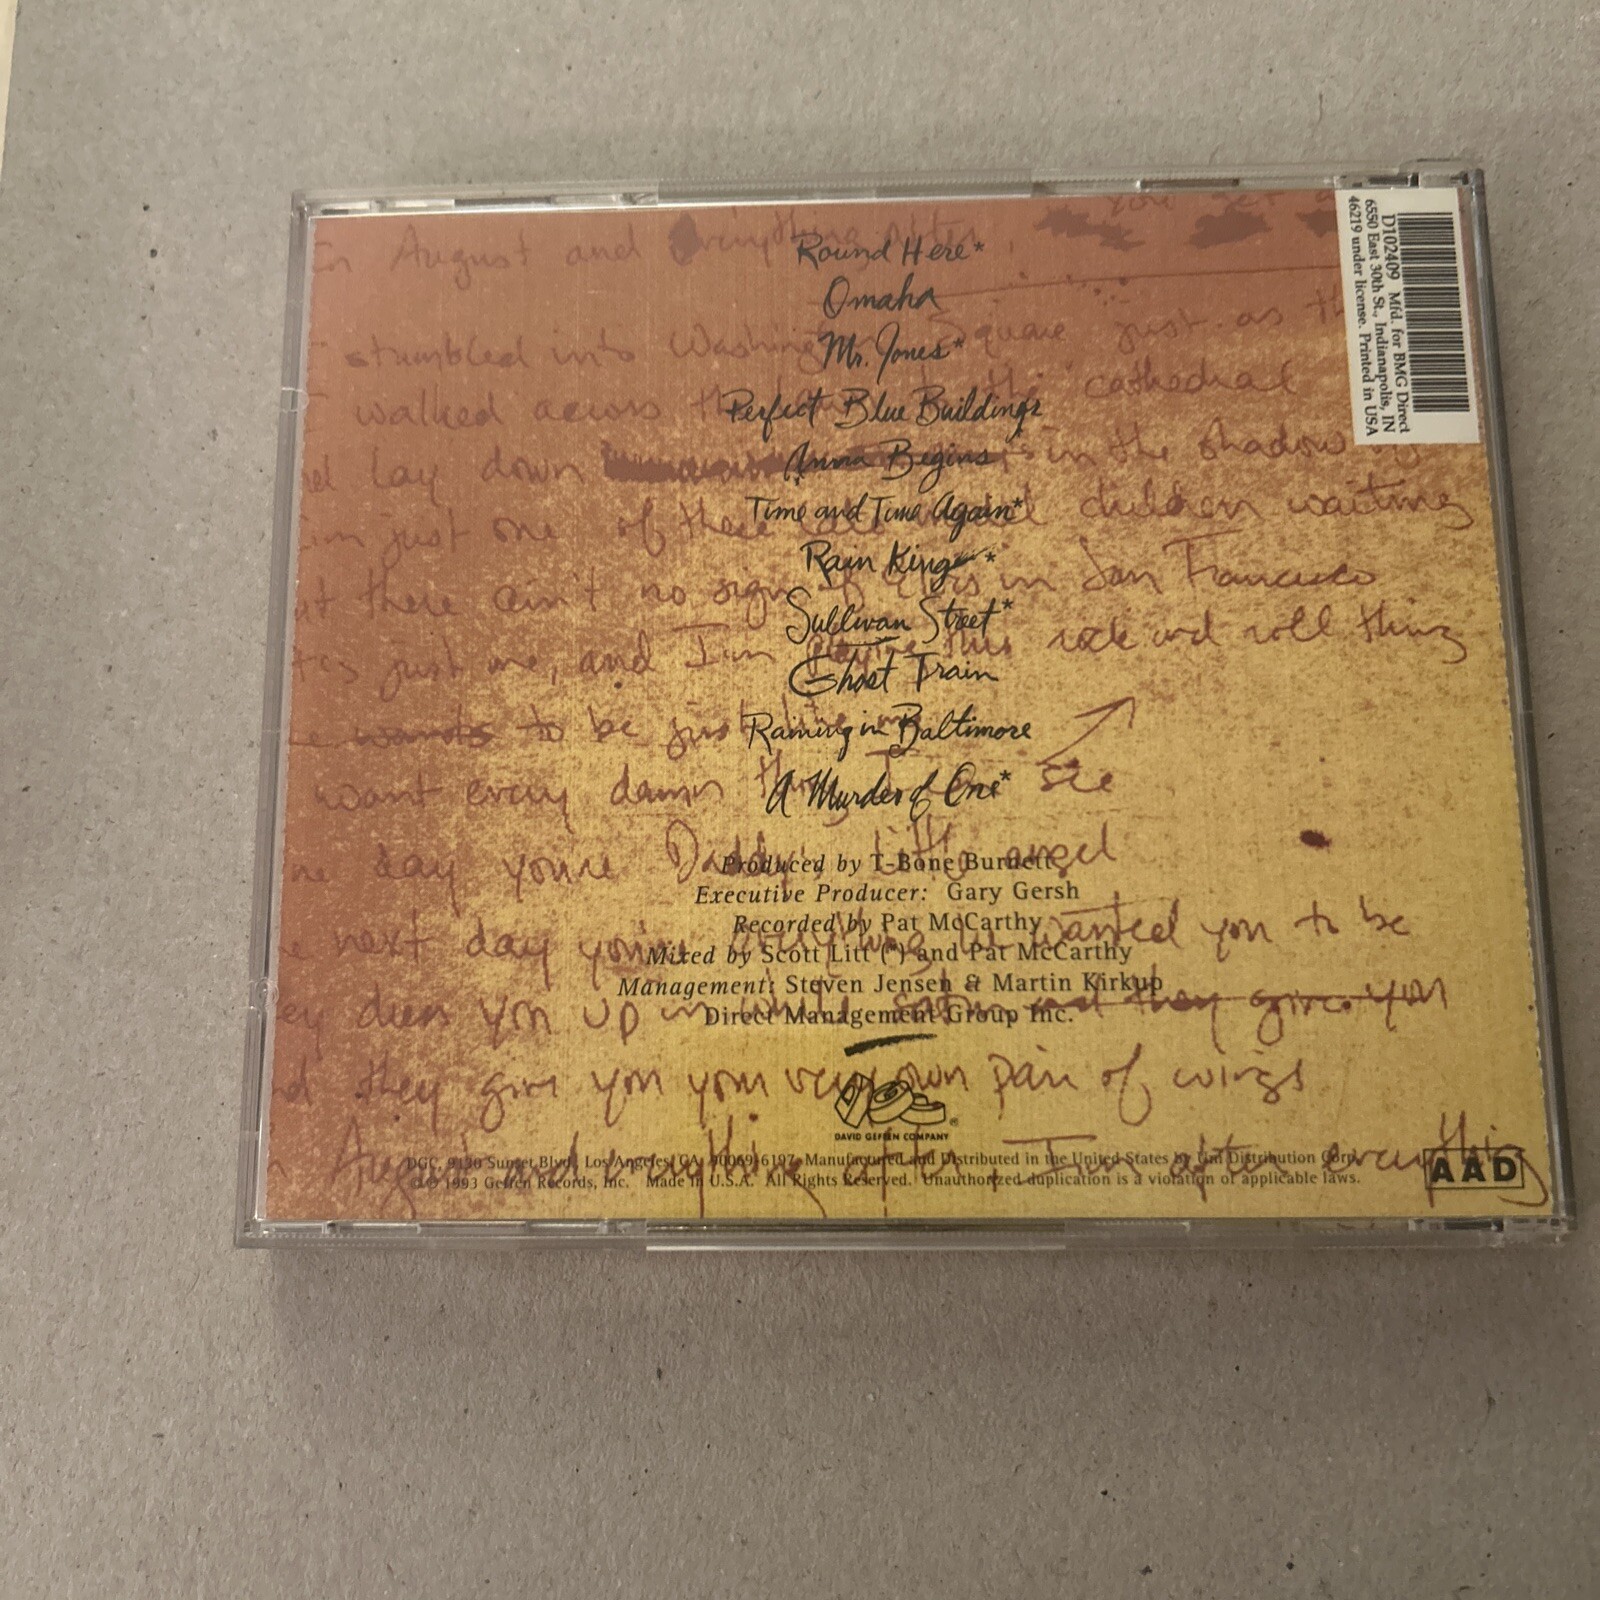 Round Here*
Omaha
Mr. Jones*
Perfect Blue Buildings
Anna Begins
Time and Time Again*
Rain King*
Sullivan Street*
Ghost Train
Raining in Baltimore
A Murder of One*
Produced by T-Bone Burnett
Executive Producer: Gary Gersh
Recorded by Pat McCarthy
Mixed by Scott Litt (*) and Pat McCarthy
Management: Steven Jensen & Martin Kirkup
Direct Management Group Inc.
DAVID GEFFEN COMPANY ®
DGC, 9130 Sunset Blvd., Los Angeles, CA 90069-6197. Manufactured and Distributed in the United States by Uni Distribution Corp.
1993 Geffen Records, Inc. Made in U.S.A. All Rights Reserved. Unauthorized duplication is a violation of applicable laws.
AAD
D102409 Mfd. for BMG Direct
6550 East 30th St., Indianapolis, IN
46219 under license. Printed in USA
August and everything
stumbled into Washington Square just as
walked across the cathedral
lay down in the shadow
just one of these children waiting
there ain't no sign of in San Francisco
just me, and I'm playing this rock and roll thing
wants to be just like me
want every damn thing I see
day you're Daddy's little angel
next day you're everything he wanted you to be
dress you up in white satin and they give you
they give you your very own pair of wings
August and everything after I'm after everything